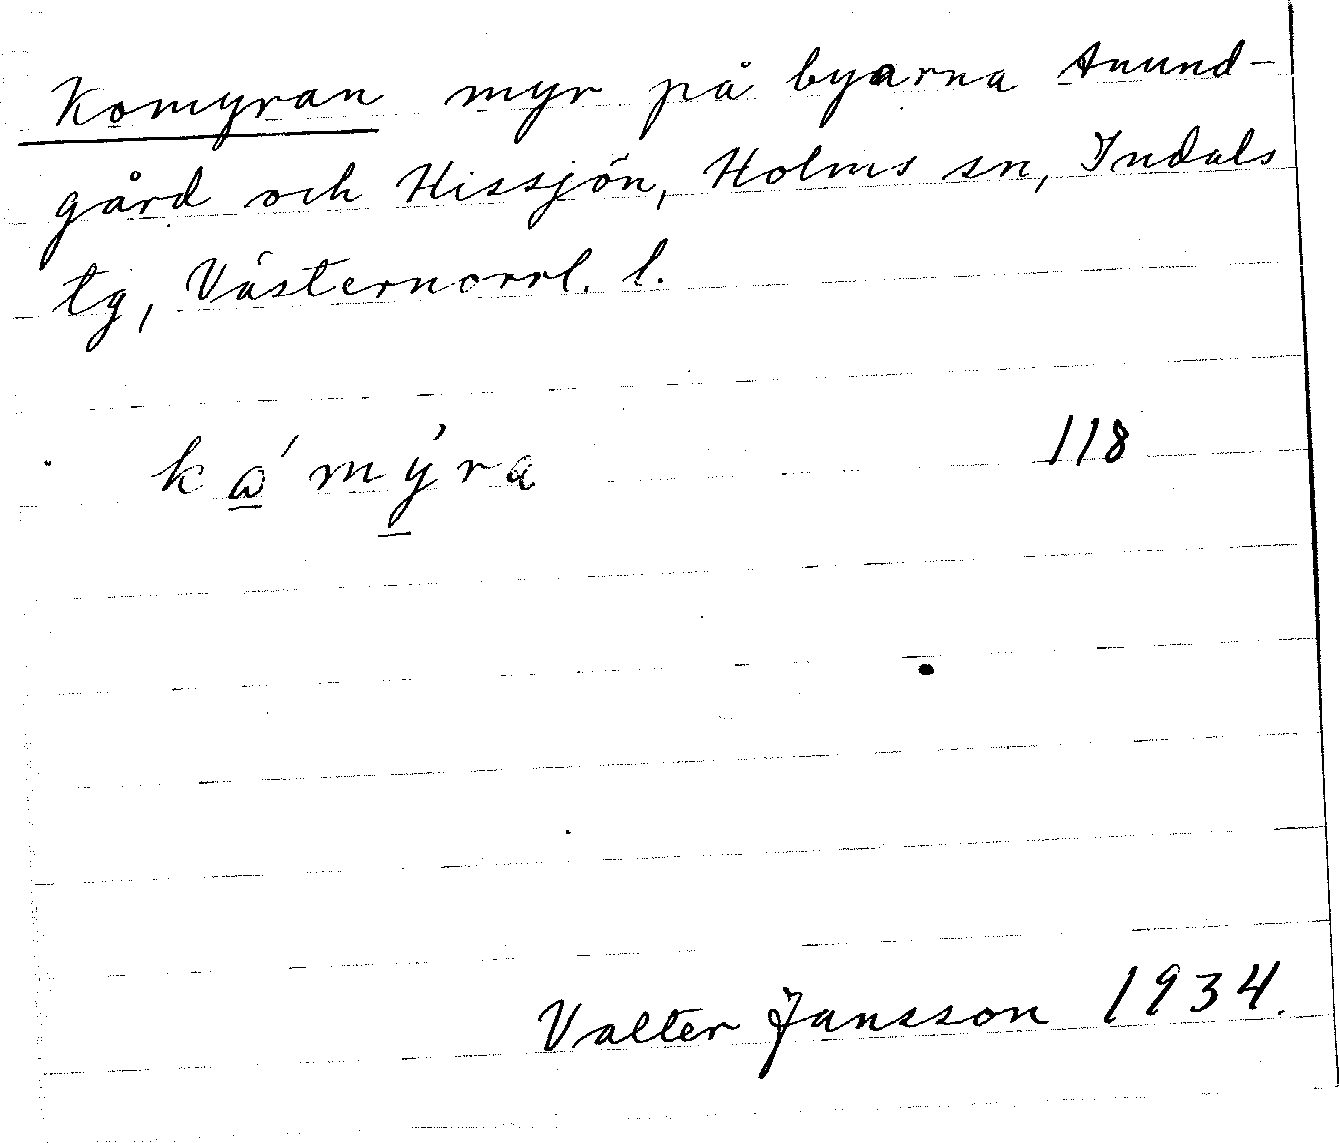 Komyran myr på byarna Anund-
gård och Hissjön, Holms sn, Indals
tg, Västernorrl. l.
118
Valter Jansson 1934.